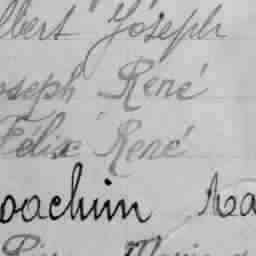 lbert Joseph
oseph René
Félix René
oachim Ma